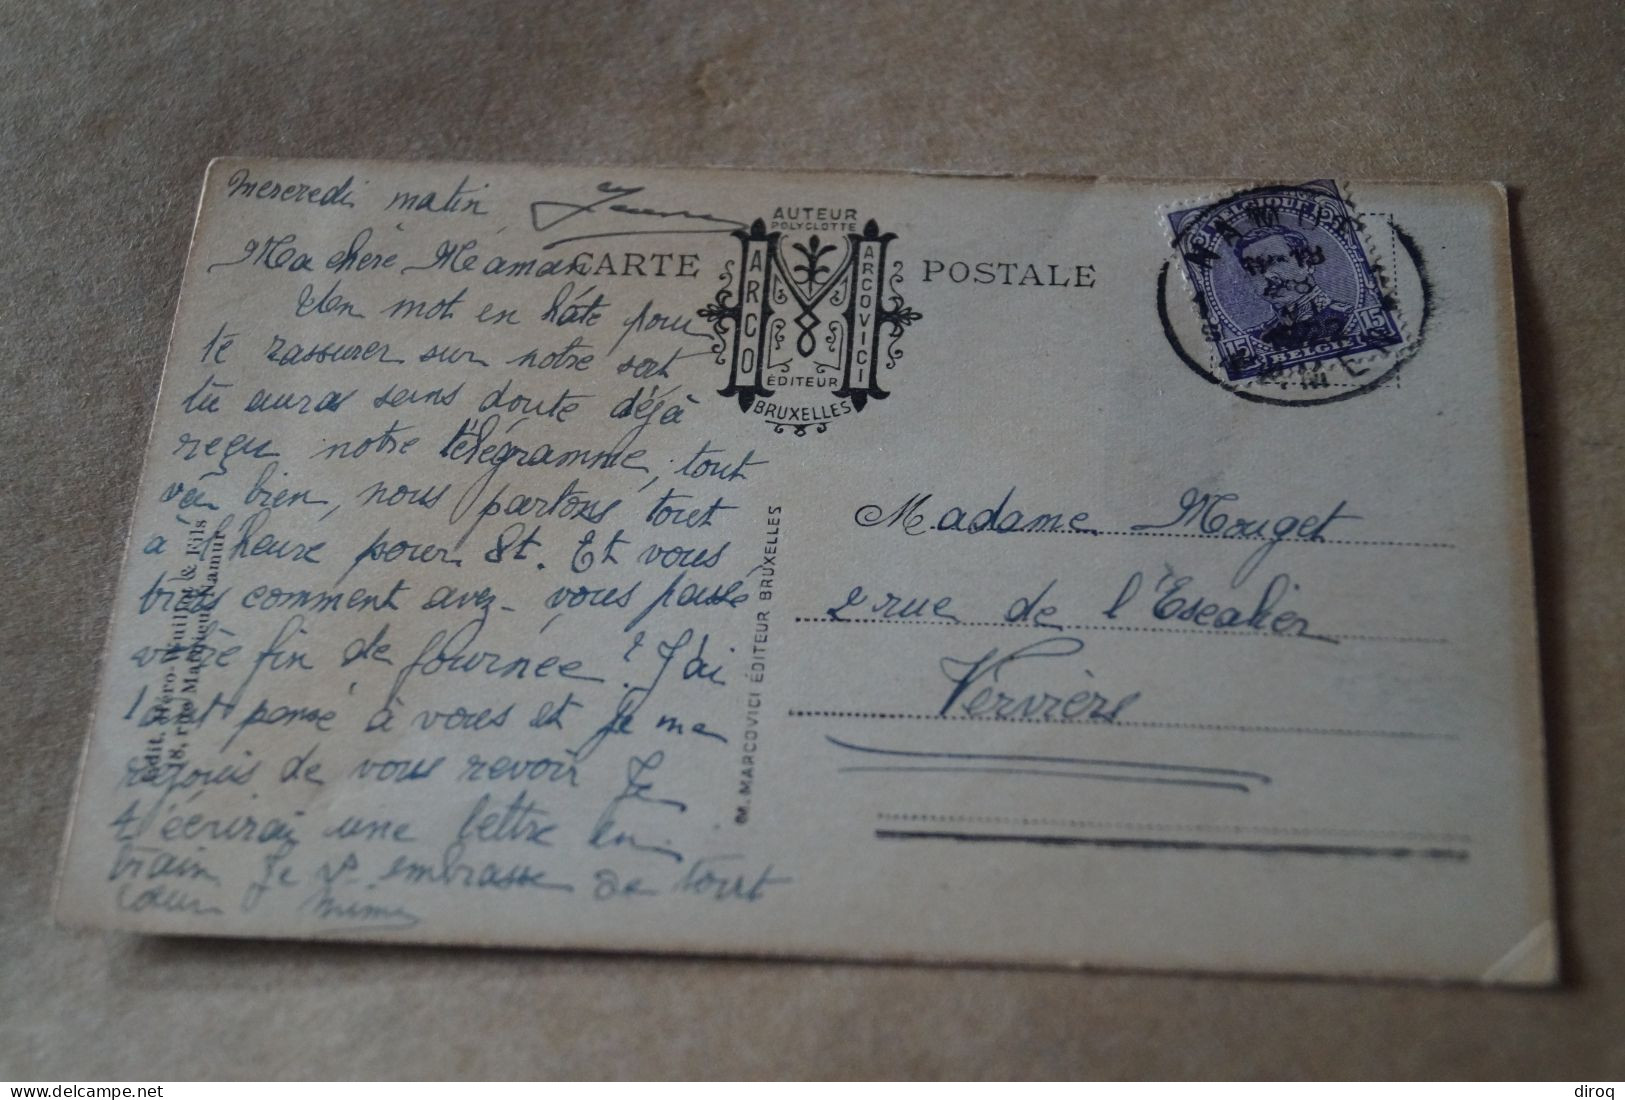 Mercredi matin
Ma chère Maman
Un mot en hâte pour
te rassurer sur notre sort
tu auras sans doute déjà
reçu notre télégramme, tout
va bien, nous partons tout
à l'heure pour St. Et vous
comment avez-vous passé
votre fin de journée? J'ai
tant pensé à vous et je me
réjouis de vous revoir Je
t'écrirai une lettre en
train Je embrasse de tout
cœur Mimi
CARTE POSTALE
AUTEUR
POLYGLOTTE
ARCO
ARCOVICI
ÉDITEUR
BRUXELLES
M. MARCOVICI ÉDITEUR BRUXELLES
Edit. Héro-Wuillot & Fils
18, rue Mathieu, Namur
BELGIQUE
15 15
BELGIE
Madame Mouget
2 rue de l'Escalier
Verviers
delcampe.net
diroq